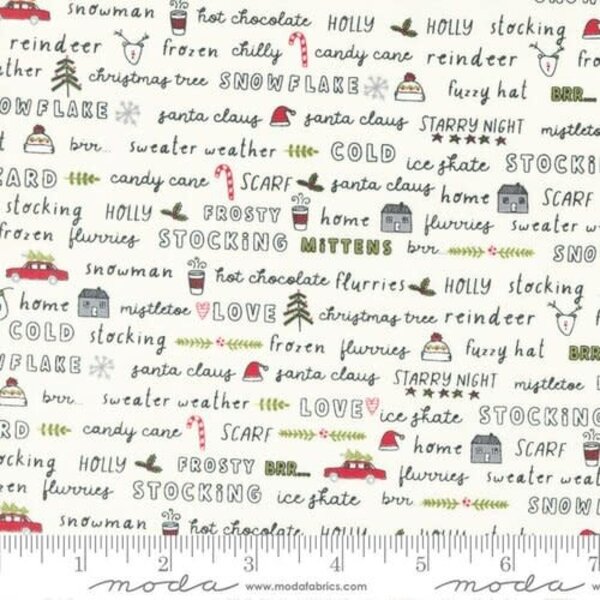 snowman hot chocolate HOLLY HOLLY stocking
reindeer frozen chilly candy cane reindeer
christmas tree SNOWFLAKE fuzzy hat BRR...
SNOWFLAKE santa claus santa claus STARRY NIGHT mistletoe
brr... sweater weather COLD ice skate STOCKING
candy cane SCARF santa claus home SCARF
stocking HOLLY FROSTY home flurries sweater
frozen flurries STOCKING MITTENS brr...
snowman hot chocolate flurries HOLLY stocking
home mistletoe LOVE christmas tree reindeer
COLD stocking frozen flurries fuzzy hat BRR
santa claus santa claus STARRY NIGHT mistletoe
brr... sweater weather LOVE ice skate STOCKING
candy cane SCARF home SCARF
HOLLY FROSTY BRR... flurries sweater
flurries STOCKING ice skate brr
snowman hot chocolate HOLLY HOLLY
1 2 3 4 5 6 7
moda www.modafabrics.com moda